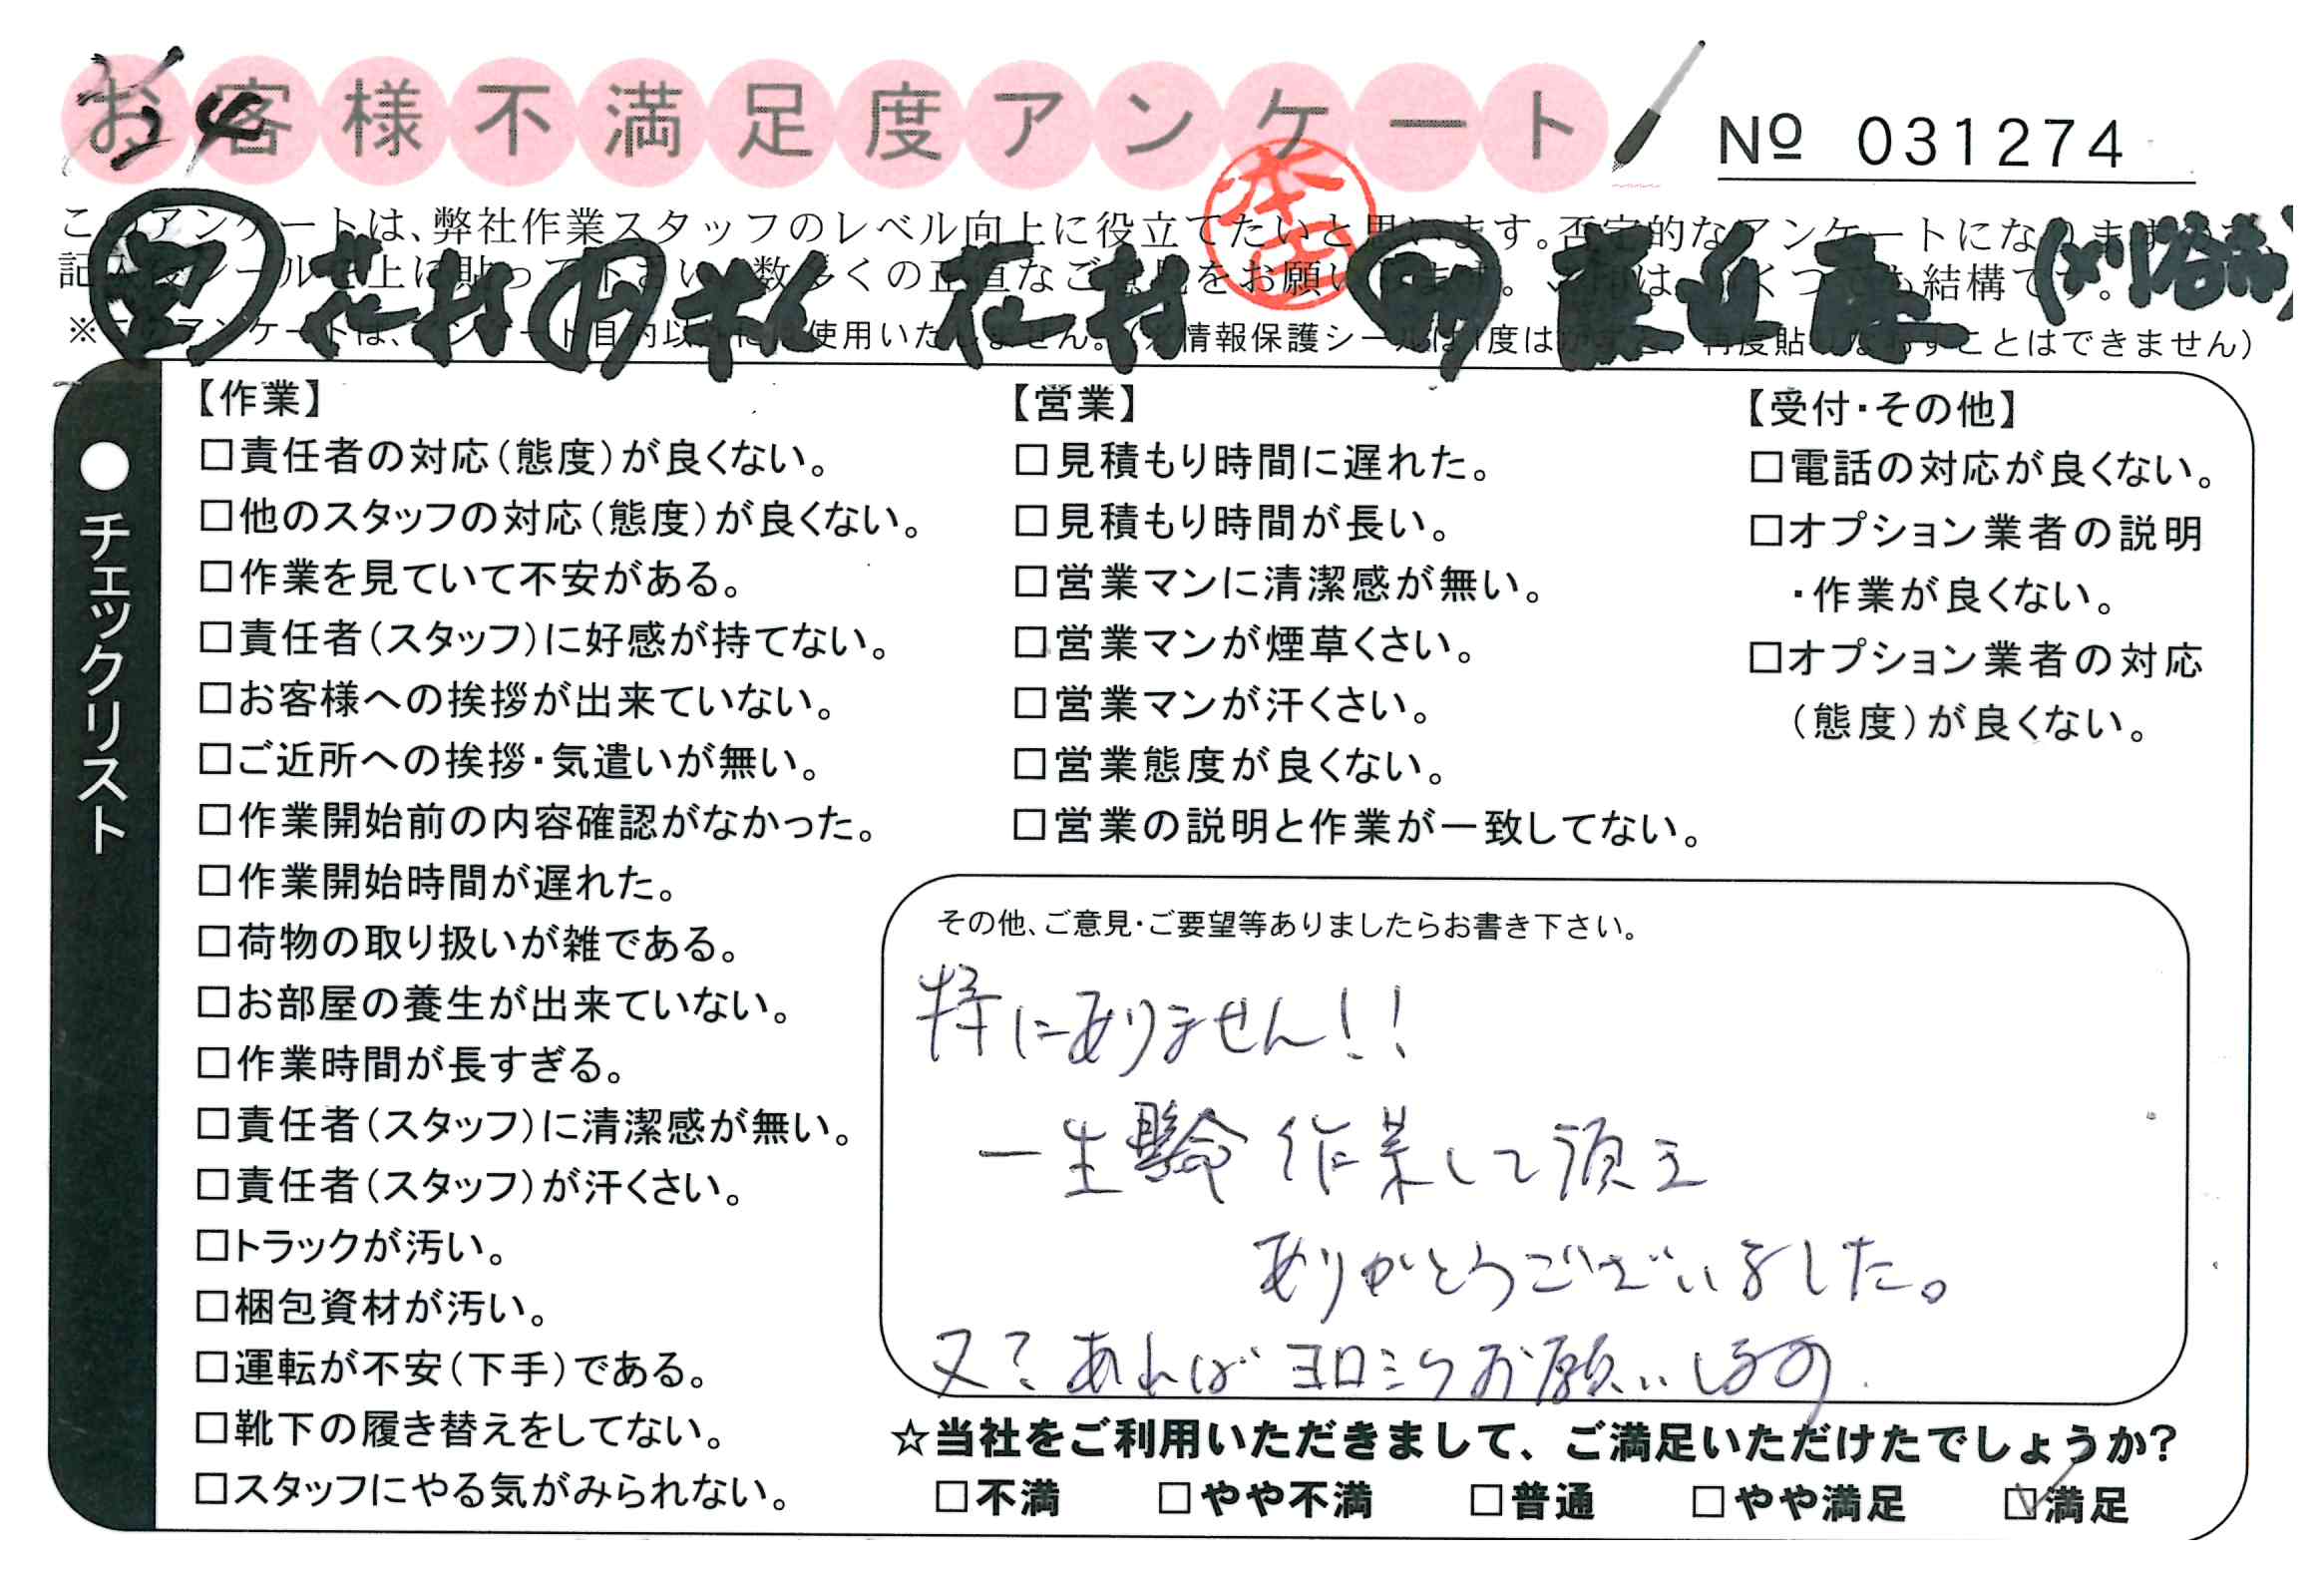 お客様不満足度アンケート
24
№ 031274
本田
このアンケートは、弊社作業スタッフのレベル向上に役立てたいと思います。否定的なアンケートになります
花村 花村 (刈谷市)
※ 使用いたしません。情報保護シールは1度はがすと、再度貼りなおすことはできません)
●チェックリスト
【作業】
□責任者の対応(態度)が良くない。
□他のスタッフの対応(態度)が良くない。
□作業を見ていて不安がある。
□責任者(スタッフ)に好感が持てない。
□お客様への挨拶が出来ていない。
□ご近所への挨拶・気遣いが無い。
□作業開始前の内容確認がなかった。
□作業開始時間が遅れた。
□荷物の取り扱いが雑である。
□お部屋の養生が出来ていない。
□作業時間が長すぎる。
□責任者(スタッフ)に清潔感が無い。
□責任者(スタッフ)が汗くさい。
□トラックが汚い。
□梱包資材が汚い。
□運転が不安(下手)である。
□靴下の履き替えをしてない。
□スタッフにやる気がみられない。
【営業】
□見積もり時間に遅れた。
□見積もり時間が長い。
□営業マンに清潔感が無い。
□営業マンが煙草くさい。
□営業マンが汗くさい。
□営業態度が良くない。
□営業の説明と作業が一致してない。
【受付・その他】
□電話の対応が良くない。
□オプション業者の説明
・作業が良くない。
□オプション業者の対応
(態度)が良くない。
その他、ご意見・ご要望等ありましたらお書き下さい。
特にありません!!
一生懸命作業して頂き
ありがとうございました。
あればヨロシクお願いします
☆当社をご利用いただきまして、ご満足いただけたでしょうか?
□不満 □やや不満 □普通 □やや満足 ☑満足